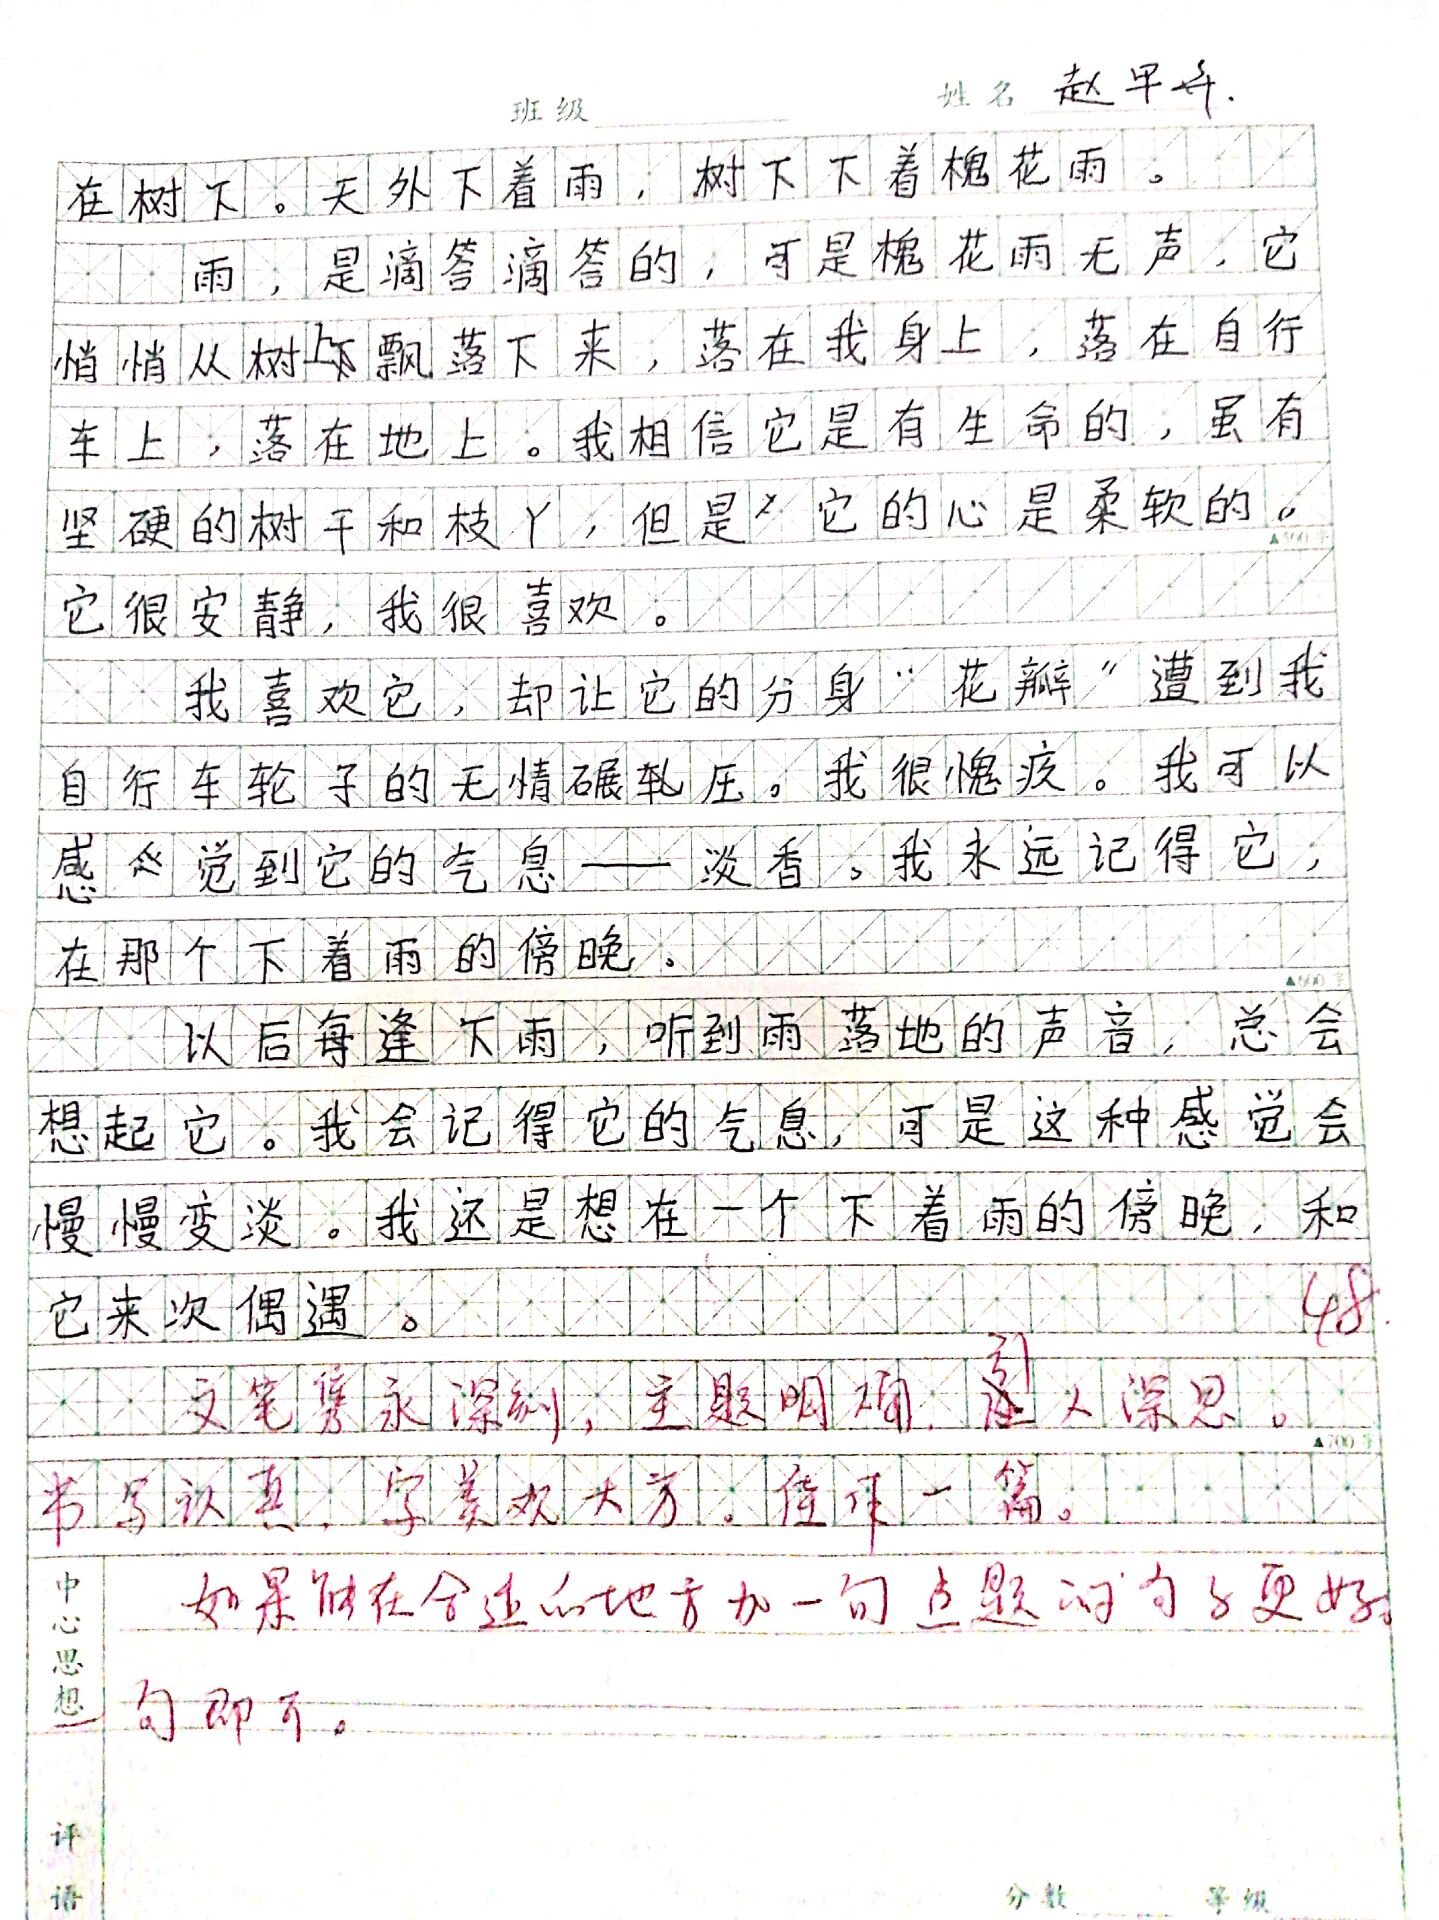 班级 姓名 赵早弁.
在树下。天外下着雨，树下下着槐花雨。
雨，是滴答滴答的，可是槐花雨无声，它
悄悄从树上飘落下来，落在我身上，落在自行
车上，落在地上。我相信它是有生命的，虽有
坚硬的树干和枝丫，但是它的心是柔软的。
▲500字
它很安静，我很喜欢。
我喜欢它，却让它的分身“花瓣”遭到我
自行车轮子的无情碾轧压。我很愧疚。我可以
感觉到它的气息——淡香。我永远记得它，
在那个下着雨的傍晚。
▲600字
以后每逢下雨，听到雨落地的声音，总会
想起它。我会记得它的气息，可是这种感觉会
慢慢变淡。我还是想在一个下着雨的傍晚，和
它来次偶遇。
48
文笔隽永深刻，主题明确，引人深思。
▲700字
书写认真，字美观大方。佳作一篇。
中心思想
如果能在合适的地方加一句点题的句子更好。
句即可。
评语
分数 等级